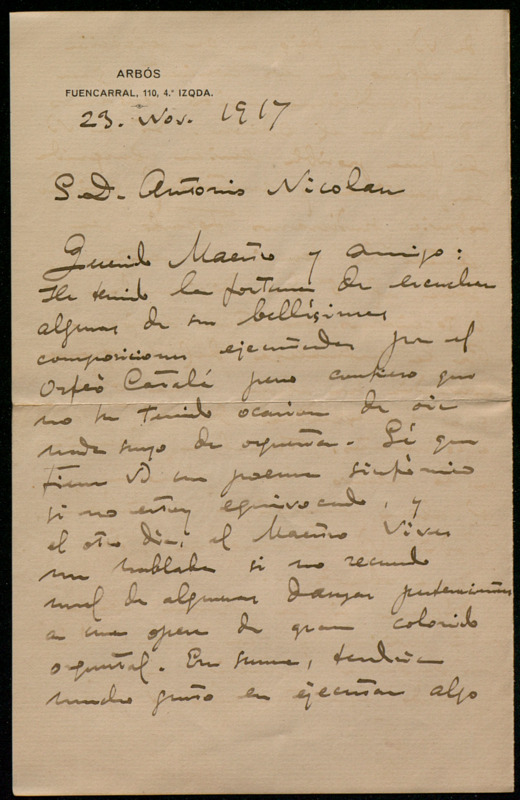 ARBÓS
FUENCARRAL, 110, 4.º IZQDA.
23. Nov. 1917
S. D. Antonio Nicolau
Querido Maestro y amigo:
He tenido la fortuna de escuchar
algunas de sus bellísimas
composiciones ejecutadas por el
Orfeó Català pero confieso que
no he tenido ocasion de oir
nada suyo de orquesta. Sé que
tiene Vd un poema sinfónico
si no estoy equivocado, y
el otro dia, el Maestro Vives
me hablaba si no recuerdo
mal de algunas danzas pertenecientes
a una opera de gran colorido
orquestal. En suma, tendria
mucho gusto en ejecutar algo